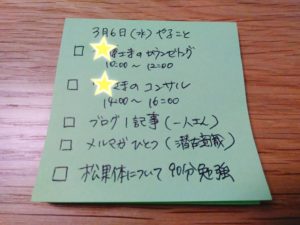 3月6日(水)やること
□ さまのカウンセリング
10:00~12:00
□ さまのコンサル
14:00~16:00
□ ブログ1記事(一人さん)
□ メルマガひとつ(潜在意識)
□ 松果体について90分勉強